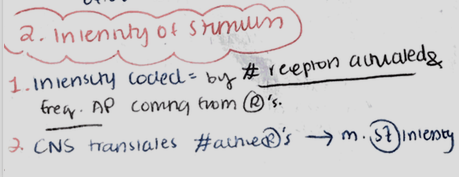 2. Intensity of Stimulus
1. Intensity coded = by # receptors activated &
freq. AP coming from Ⓡ's.
2. CNS translates # active Ⓡ's → m. St intensity